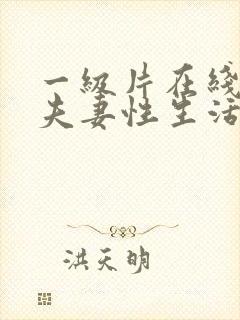 一级片在线
夫妻性生活
洪天明